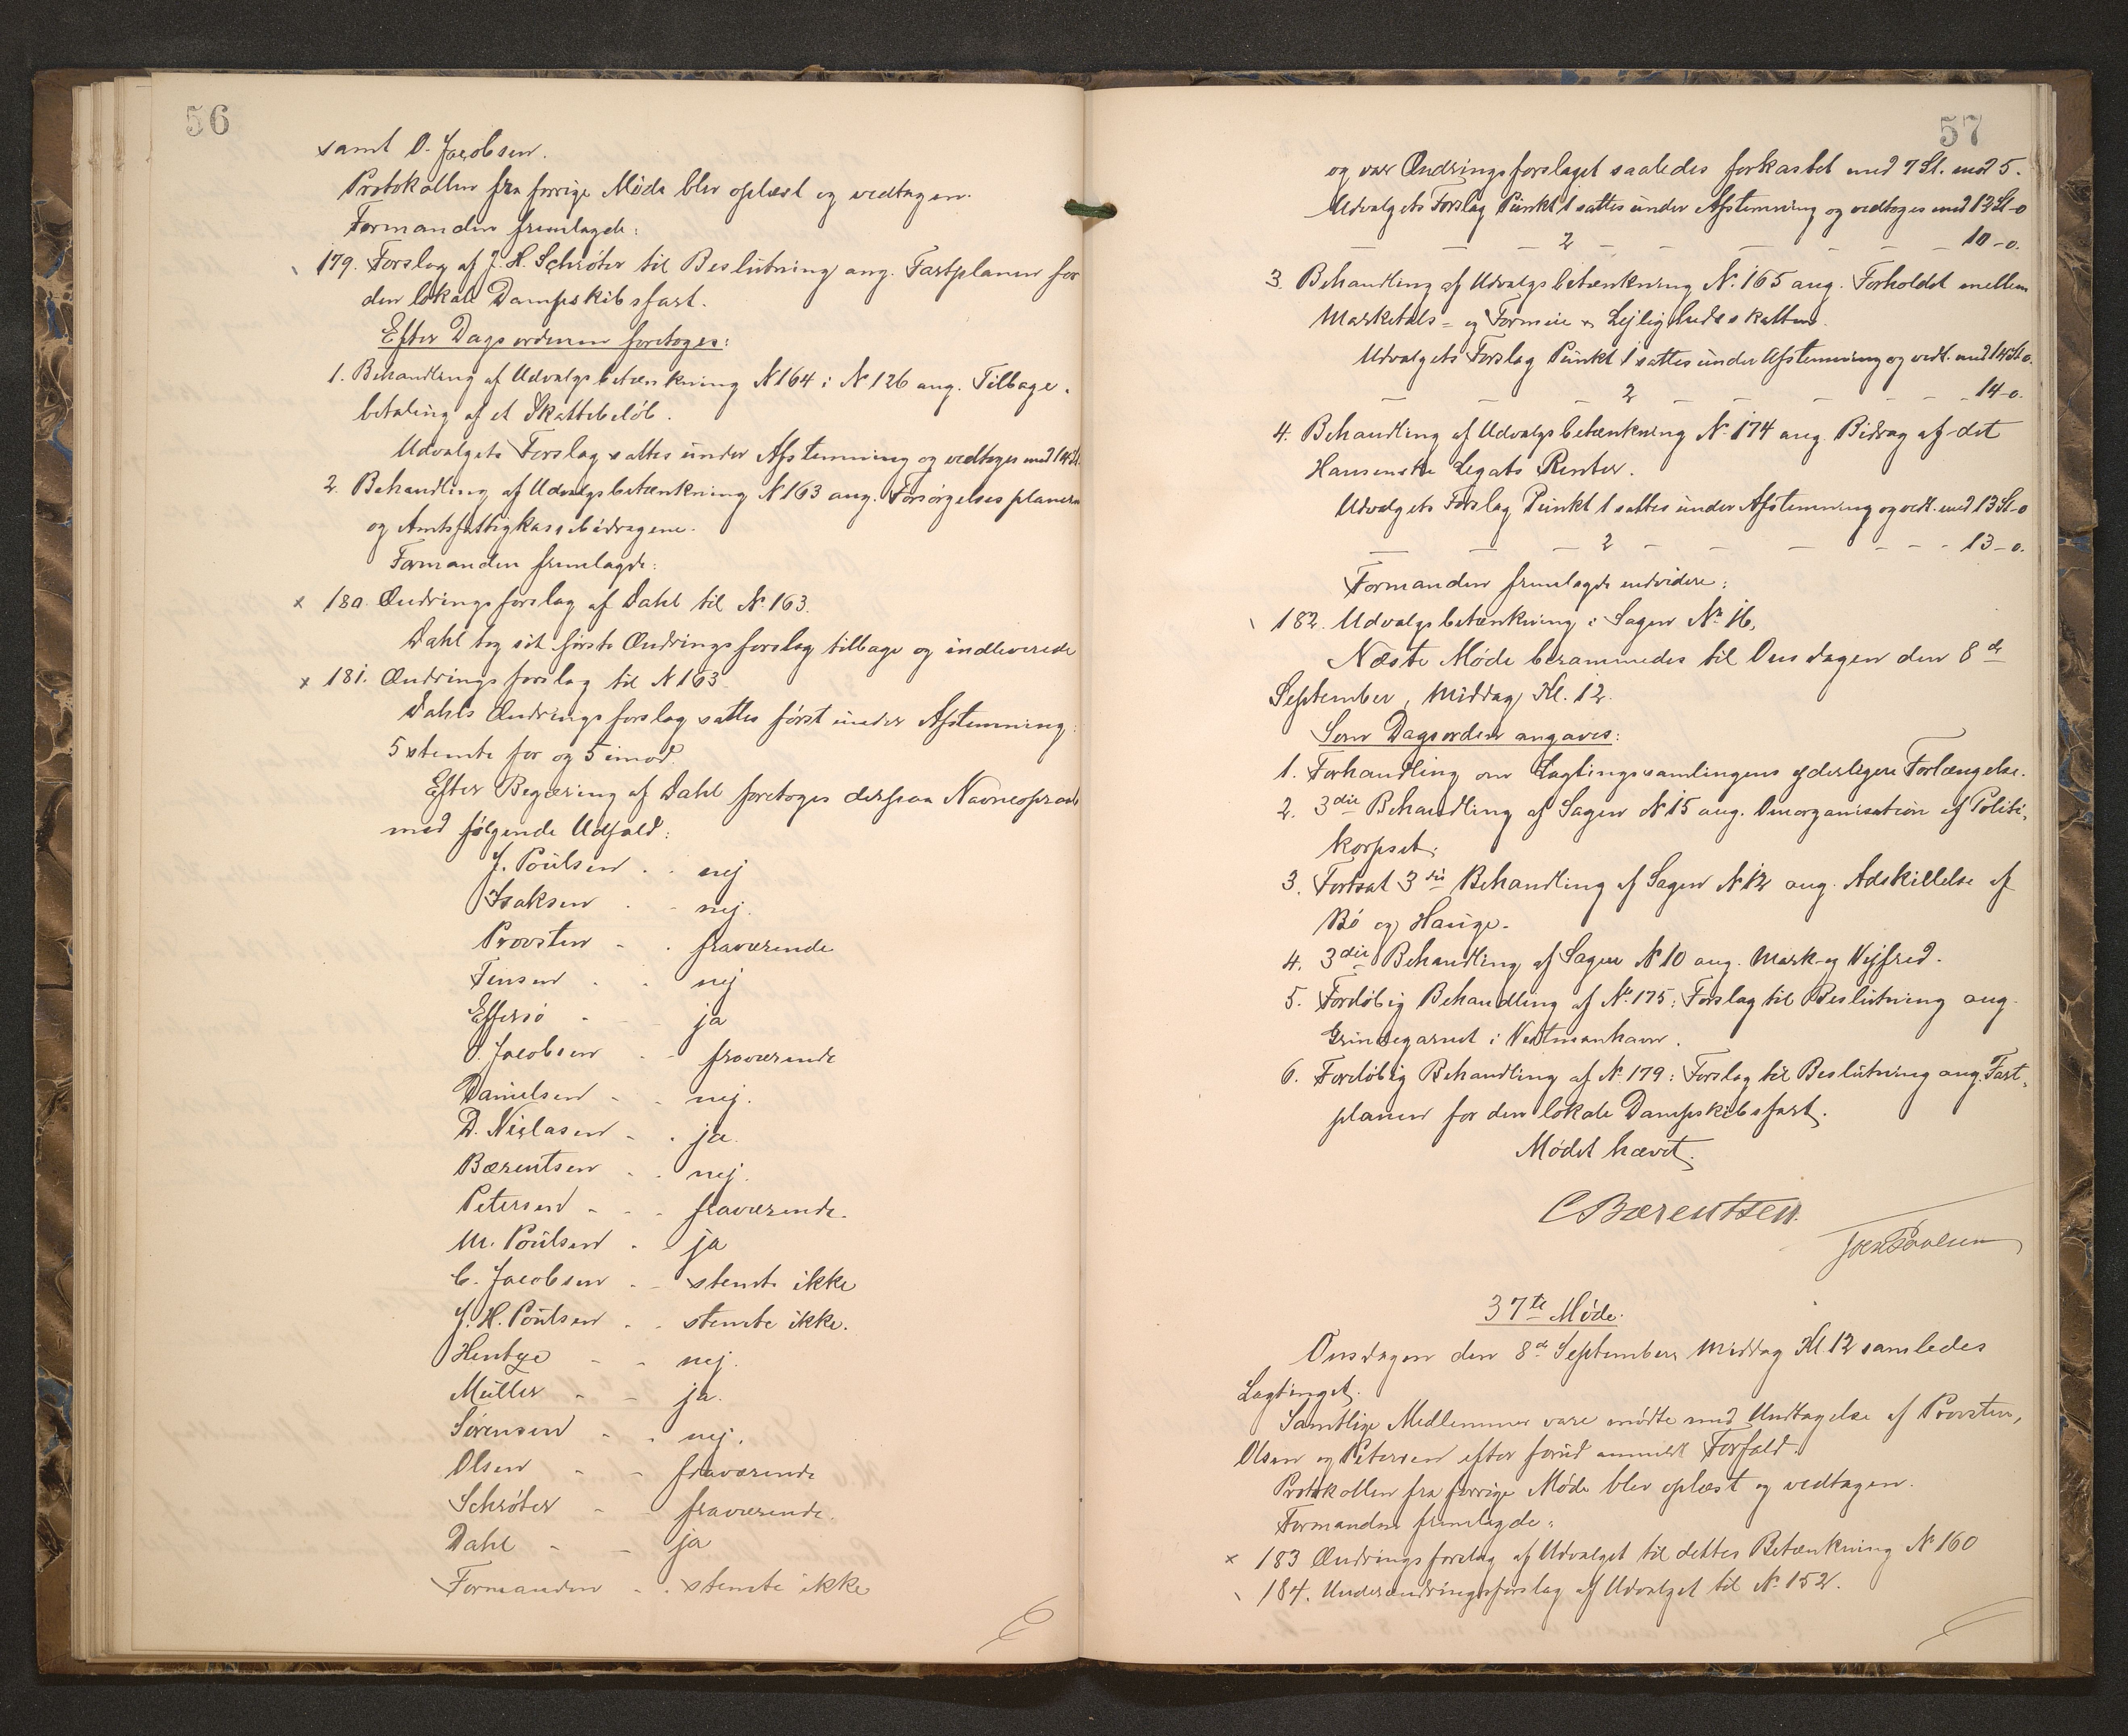 56
samt O. Jacobsen.
Protokollen fra forrige Møde blev oplæst og vedtagen.
Formanden fremlagde:
179. Forslag af J. H. Schrøter til Beslutning ang. Fartplanen for
den lokale Dampskibsfart.
Efter Dagsordenen foretoges:
1. Behandling af Udvalgsbetænkning N 164 i N 126 ang. Tilbage-
betaling af et Skattebeløb.
Udvalgets Forslag sattes under Afstemning og vedtoges med 14 St.
2. Behandling af Udvalgsbetænkning N 163 ang. Forsørgelsesplanern
og Amtsfattigkassebidragene.
Formanden fremlagde:
x 180. Ændringsforslag af Dahl til N. 163.
Dahl tog sit første Ændringsforslag tilbage og indleverede
x 181. Ændringsforslag til N 163
Dahls Ændringsforslag sattes først under Afstemning:
5 stemte for og 5 imod.
Efter Begæring af Dahl foretoges derpaa Navneopraab
med følgende Udfald:
J. Poulsen . . nej
Isaksen . - nej.
Provsten - . fraværende
Jensen . . nej
Effersø - - ja
O. Jacobsen - - fraværende
Danielsen - - nej.
D. Niclasen - . ja.
Bærentsen - . nej.
Petersen - - - fraværende.
M. Poulsen - ja
C. Jacobsen . - stemte ikke
J. H. Poulsen . . stemte ikke.
Hentze - - nej.
Müller - - ja.
Sørensen - . nej.
Olsen - - fraværende
Schrøter - fraværende.
Dahl - - ja
Formanden - . stemte ikke
57
og var Ændringsforslaget saaledes forkastet med 7 St. mod 5.
Udvalgets Forslag Punkt 1 sattes under Afstemning og vedtoges med 12 St-0
— — — 2 — — — — — — 10-0.
3. Behandling af Udvalgsbetænkning N. 165 ang. Forholdet mellem
Marketals- og Formue & Lejlighedsskatten.
Udvalgets Forslag Punkt 1 sattes under Afstemning og vedt. med 14 St-0.
— — — 2 — — — — — — 14-0.
4. Behandling af Udvalgsbetænkning N. 174 ang. Bidrag af det
Hansenske Legats Renter.
Udvalgets Forslag Punkt 1 sattes under Afstemning og vedt. med 13 St-0
— — — 2 — — — — — — 13-0.
Formanden fremlagde endvidere:
182. Udvalgsbetænkning i Sagen N. 16.
Næste Møde berammedes til Onsdagen den 8de
September, Middag Kl. 12.
Som Dagsorden angaves:
1. Forhandling om Lagtingssamlingens yderligere Forlængelse.
2. 3die Behandling af Sagen N 15 ang. Omorganisation af Politi-
korpset.
3. Fortsat 3die Behandling af Sagen N 12 ang. Adskillelse af
Bø og Hauge.
4. 3die Behandling af Sagen N 10 ang. Mark- og Vejfred.
5. Foreløbig Behandling af N. 175: Forslag til Beslutning ang.
Grindegarnet i Vestmanhavn.
6. Foreløbig Behandling af N. 179: Forslag til Beslutning ang. Fart-
planen for den lokale Dampskibsfart.
Mødet hævet.
C Bærentsen.
Joen Poulsen
37te Møde.
Onsdagen den 8de September, Middag Kl. 12 samledes
Lagtinget.
Samtlige Medlemmer vare mødte med Undtagelse af Provsten,
Olsen og Petersen efter forud anmeldt Forfald.
Protokollen fra forrige Møde blev oplæst og vedtagen.
Formanden fremlagde:
x 183 Ændringsforslag af Udvalget til dettes Betænkning N 160
184. Underændringsforslag af Udvalget til N. 152.